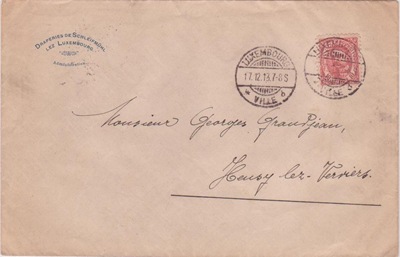 DRAPERIES DE SCHLEIFMÜHL
LEZ LUXEMBOURG
LUXEMBOURG
17.12.13.7-8S
VILLE
LUXEMBOURG
VILLE
Monsieur Georges Grandjean,
Heusy lez-Verviers.